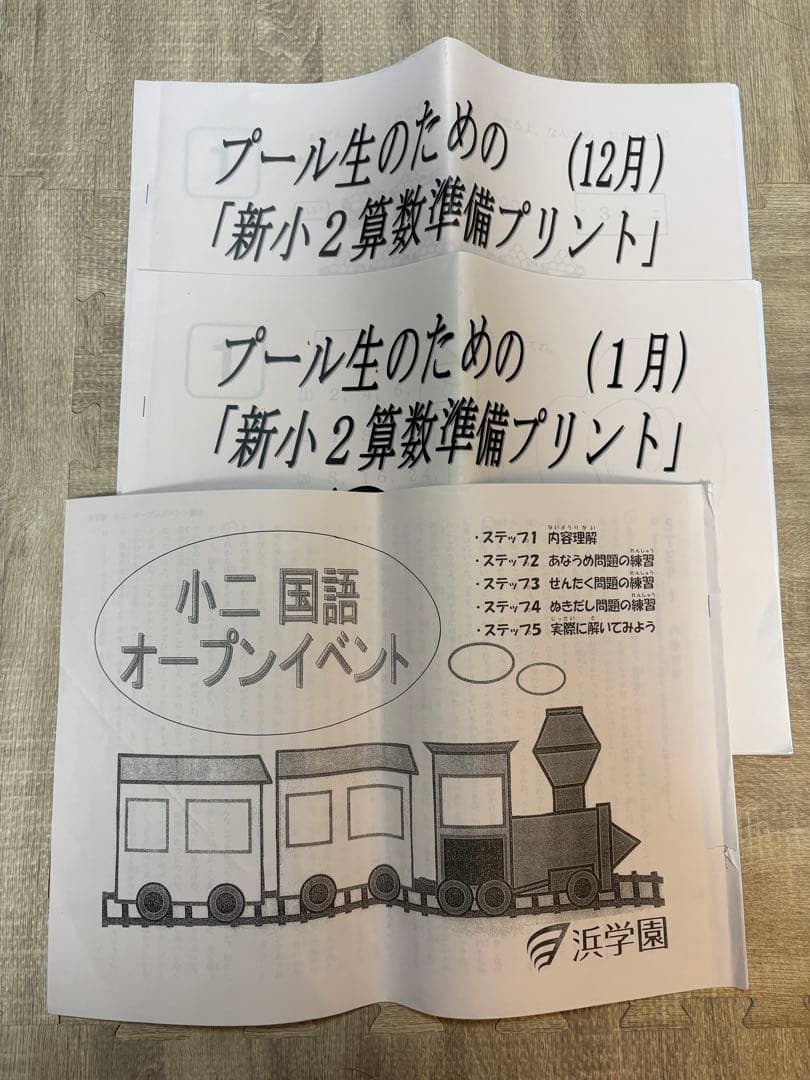 プール生のための (12月)
「新小2算数準備プリント」
プール生のための (1月)
「新小2算数準備プリント」
小二 国語
オープンイベント
・ステップ1 内容理解
・ステップ2 あなうめ問題の練習
・ステップ3 せんたく問題の練習
・ステップ4 ぬきだし問題の練習
・ステップ5 実際に解いてみよう
浜学園